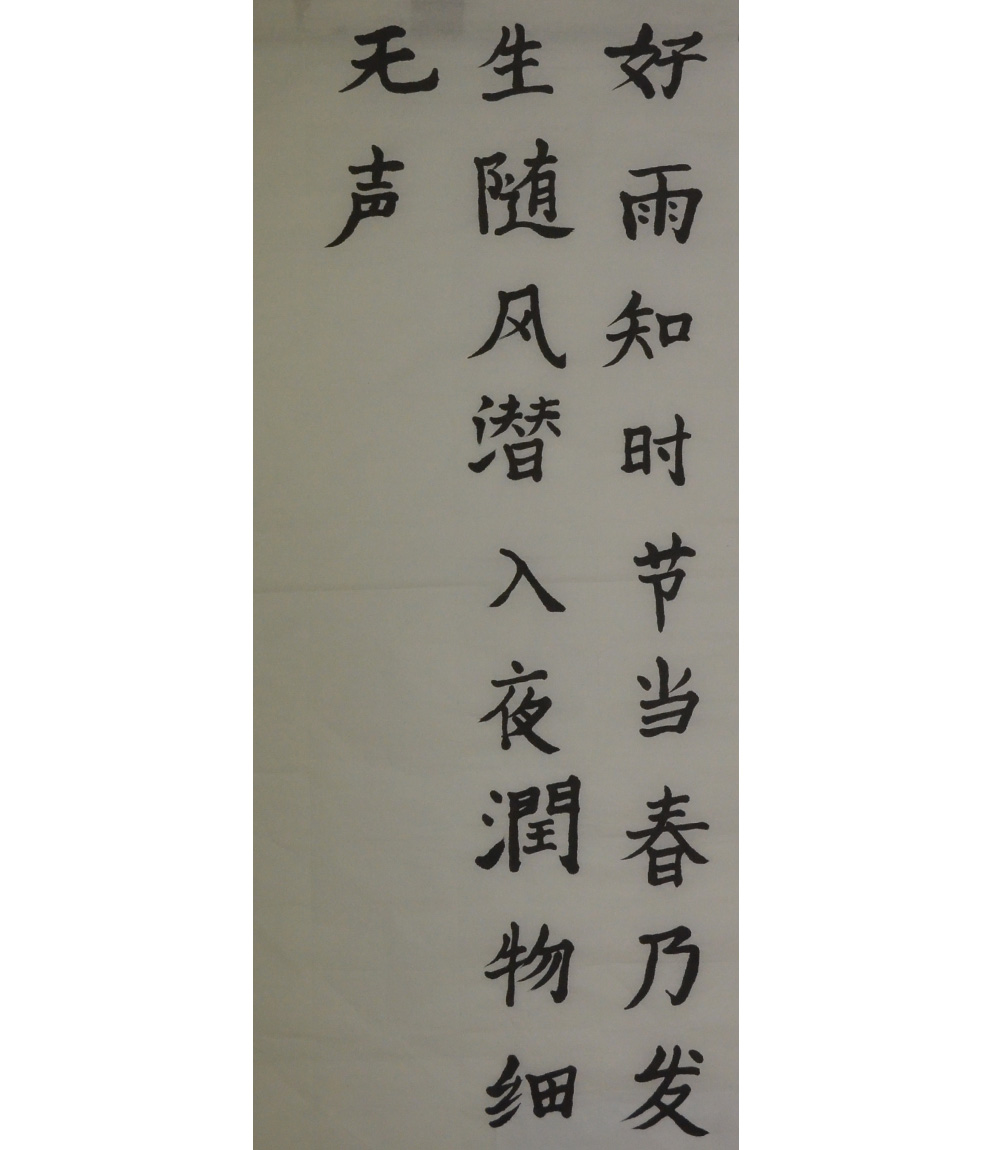 好雨知时节当春乃发
生随风潜入夜潤物细
无声